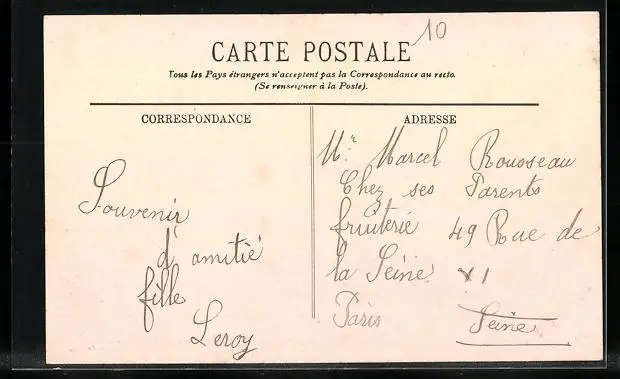 10
CARTE POSTALE
Tous les Pays étrangers n'acceptent pas la Correspondance au recto.
(Se renseigner à la Poste).
CORRESPONDANCE
Souvenir
d'amitié
fille
Leroy
ADRESSE
Mr. Marcel Rousseau
Chez ses Parents
fruiterie 49 Rue de
la Seine XI
Paris Seine